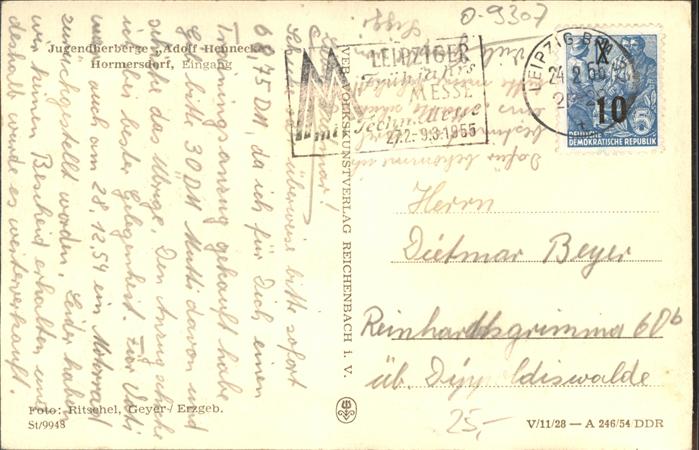 0-9307
Jugendherberge „Adolf Hennecke"
Hormersdorf, Eingang
LEIPZIGER
Frühjahrs
MESSE
Technische Messe
27.2.-9.3.1955
LEIPZIG
24.2.55
10
5
DEUTSCHE
DEMOKRATISCHE REPUBLIK
überweise bitte sofort
68,75 DM, da ich für Dich einen
Trainingsanzug gekauft habe
Gib bitte 30 DM Mutti davon und
das Übrige. Den Anzug schicke
ich bei bester Gelegenheit. Für Vati
war auch am 28.12.54 ein Motorrad
zurückgestellt worden. Leider haben
wir keinen Bescheid erhalten und
deshalb wurde es weiterverkauft.
Dafür bekommen wir
VEB VOLKSKUNSTVERLAG REICHENBACH i. V.
Herrn
Dietmar Beyer
Reinhardtsgrimma 60b
üb. Dippoldiswalde
25,-
Foto: Ritschel, Geyer/Erzgeb.
St/9948
V/11/28 — A 246/54 DDR